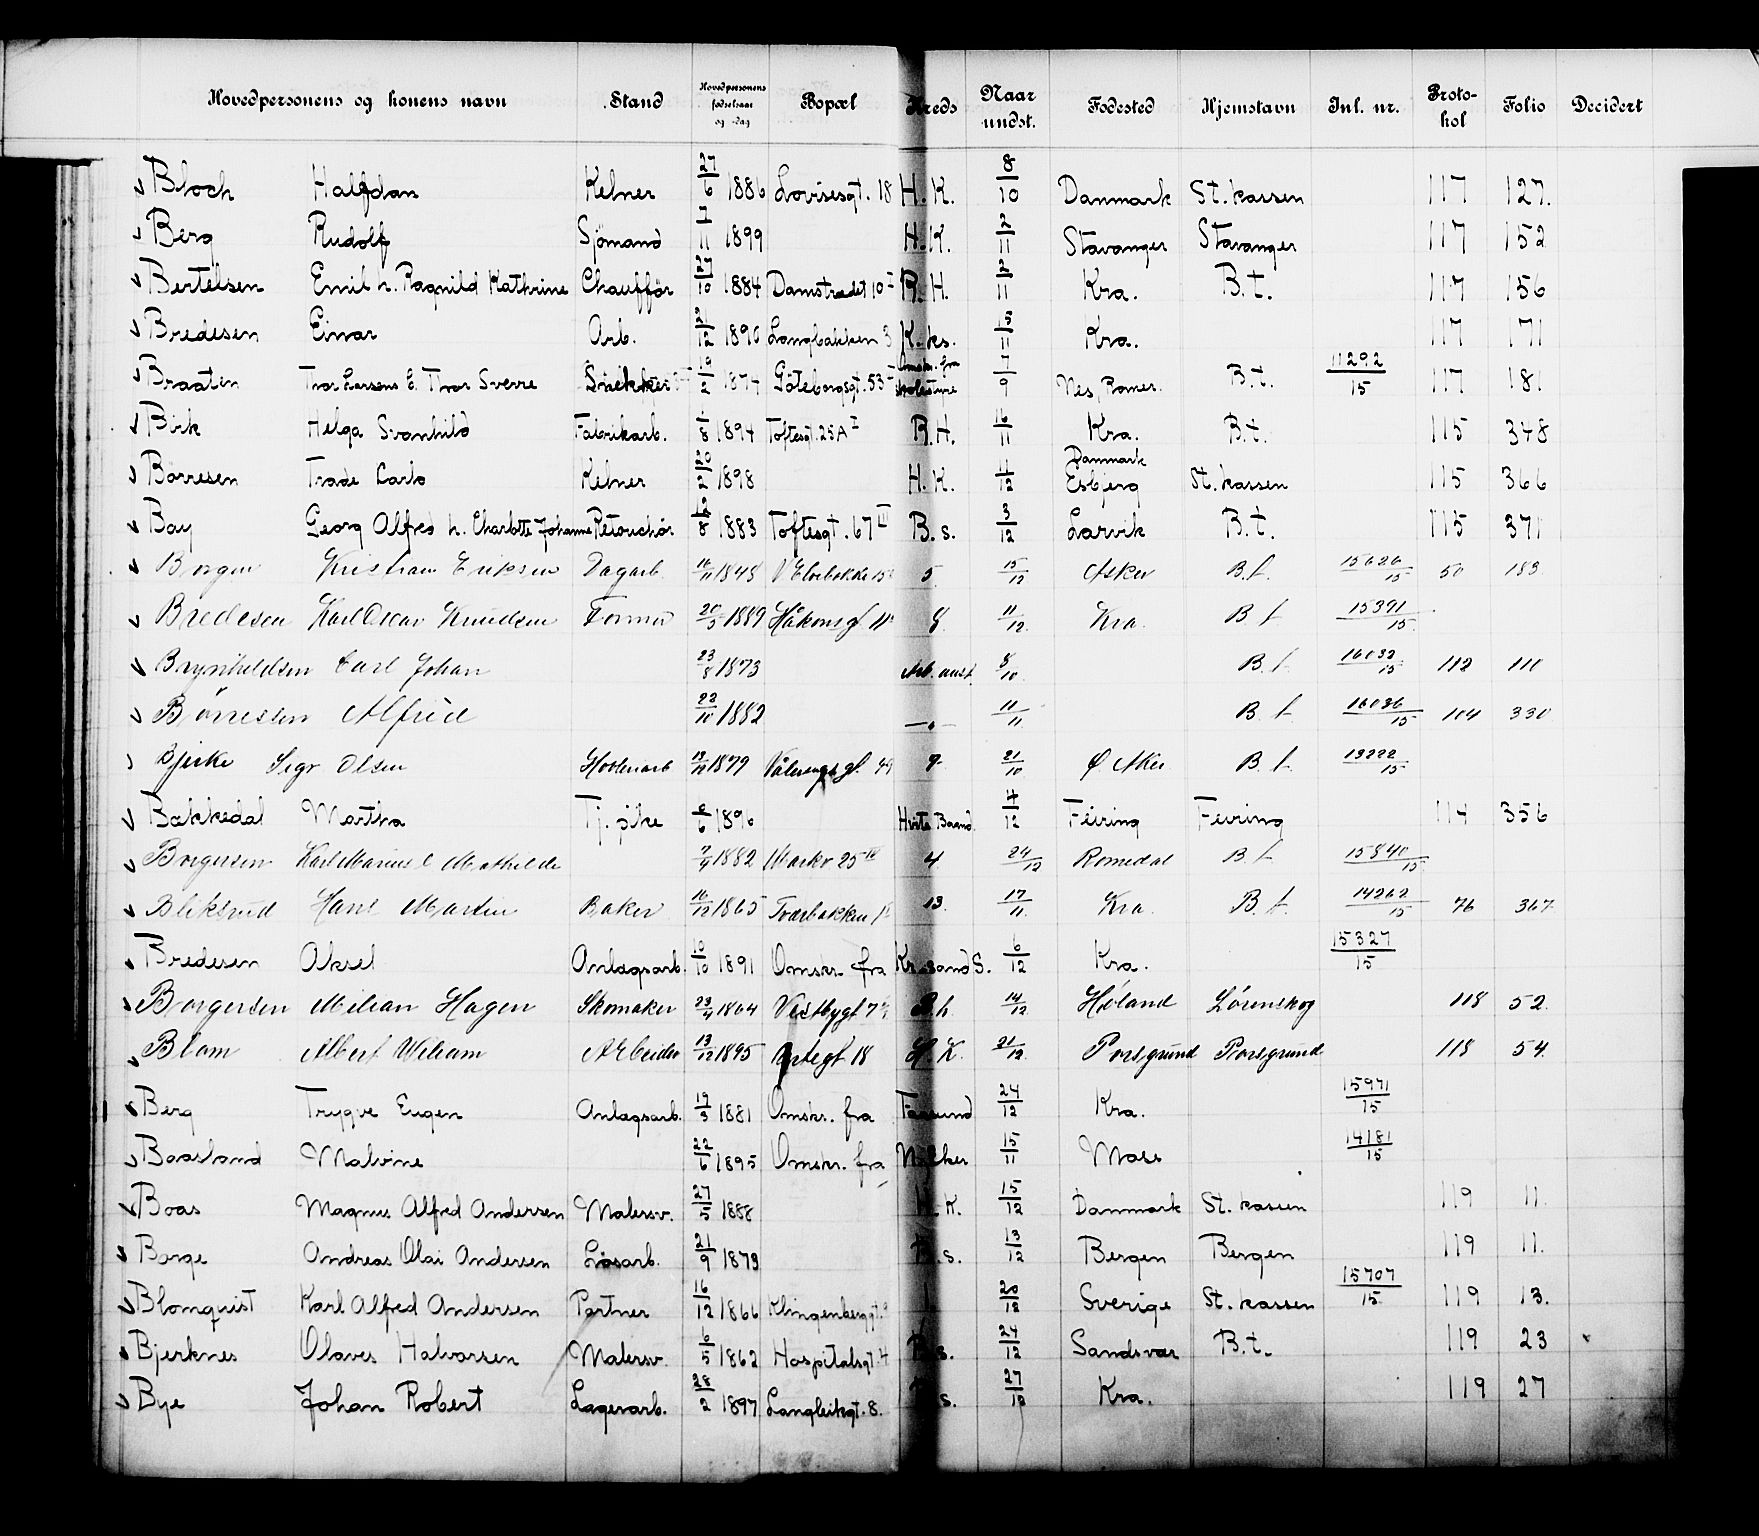 Hovedpersonens og konens navn Stand Hovedpersonens fødselsaar og -dag Bopæl Kreds Naar undst. Fødested Hjemstavn Jnl. nr. Protokol Folio Decidert
Bloch Halfdan Kelner 27/6 1886 Lovisesgt. 18 H. K. 8/10 Danmark St. kassen 117 127.
Berg Rudolf Sjömand 7/11 1899 H. K. 2/11 Stavanger Stavanger 117 152
Bertelsen Emil h. Ragnild Kathrine Chaufför 27/10 1884 Damstrædet 10 I R. H. 2/11 Kra. B. t. 117 156
Bredesen Einar Arb. 21/12 1890 Langbakken 3 K. ks. 15/11 Kra. 117 171
Braaten Thor Larsens E. Thor Sverre Snekker 19/2 1874 Göteborgsgt. 53 I Omskr. fra skolestyre 7/9 Nes, Romer. B. t. 11292/15 117 181
Birk Helga Svanhild Fabrikarb. 1/8 1894 Toftesgt. 25 A I R. H. 16/11 Kra. B. t. 115 348
Børresen Trade Carlo Kelner 20/2 1898 H. K. 4/12 Danmark Esbjerg St. kassen 115 366
Bay Georg Alfred h. Charlotte Johanne Retouchör 12/8 1883 Toftesgt. 67 III B. s. 3/12 Larvik B. t. 115 371
Borgen Kristian Eriksen Dagarb. 16/11 1848 V Elvebakke 15 5 15/12 Asker B. t. 15626/15 50 183
Bredesen Karl Oscar Knudsen Former 20/5 1889 Håkonsgt 11 8 11/12 Kra. B t 15391/15
Brynhildsen Carl Johan 23/8 1873 Arb. anst. 8/10 B. t 16032/15 112 110
Børresen Alfred 22/10 1882 — " — 11/11 B. t. 16036/15 104 330
Bjerke Sigv Olsen Hovleriarb 1879 Vålerengt gt. 49 9 21/10 Ø. Aker B. t. 13222/15
Bækkedal Martha Tj. pike 6/6 1896 Hvite Baand 4/12 Feiring Feiring 114 356
Borgersen Karl Marius E Mathilde 7/9 1882 Markv 25 IV 4 24/12 Romedal B. t. 15840/15
Bliksrud Hans Martin Baker 16/12 1865 Tverbakken 1 13 17/11 Kra. B. t. 14262/15 76 367
Bredesen Aksel Anlægsarb. 10/10 1891 Omskr. fra Kr.sand S. 6/12 Kra. 15327/15
Borgersen Milian Hagen Skomaker 23/4 1864 Vestbygt 7 B. h. 14/12 Høland Lørenskog 118 52.
Blom Albert William Arbeider 13/12 1895 18 H. K. 21/12 Porsgrund Porsgrund 118 54.
Berg Trygve Eugen Anlægsarb. 19/3 1881 Omskr. fra Farsund 24/12 Kra. 15971/15
Baasland Malvine 22/6 1895 Omskr. fra N. Aker 15/11 Moss 14181/15
Boas Magnus Alfred Andersen Malersv. 27/5 1888 H. K. 15/12 Danmark St. kassen 119 11.
Borge Andreas Olai Andersen Løsarb. 21/9 1873 B. s. 13/12 Bergen Bergen 119 11.
Blomquist Karl Alfred Andersen Portner 16/12 1866 Klingenberggt. 9 1 20/12 Sverige St. kassen 15707/15 119 13.
Bjerknes Olaves Halvorsen Malersv. 6/5 1862 Hospitalsgt. 4 B. s. 24/12 Sandsvær B. t. 119 23
Bye Johan Robert Lagerarb. 28/2 1897 Langleikgt. 8. s. 27/12 Kra. 119 27